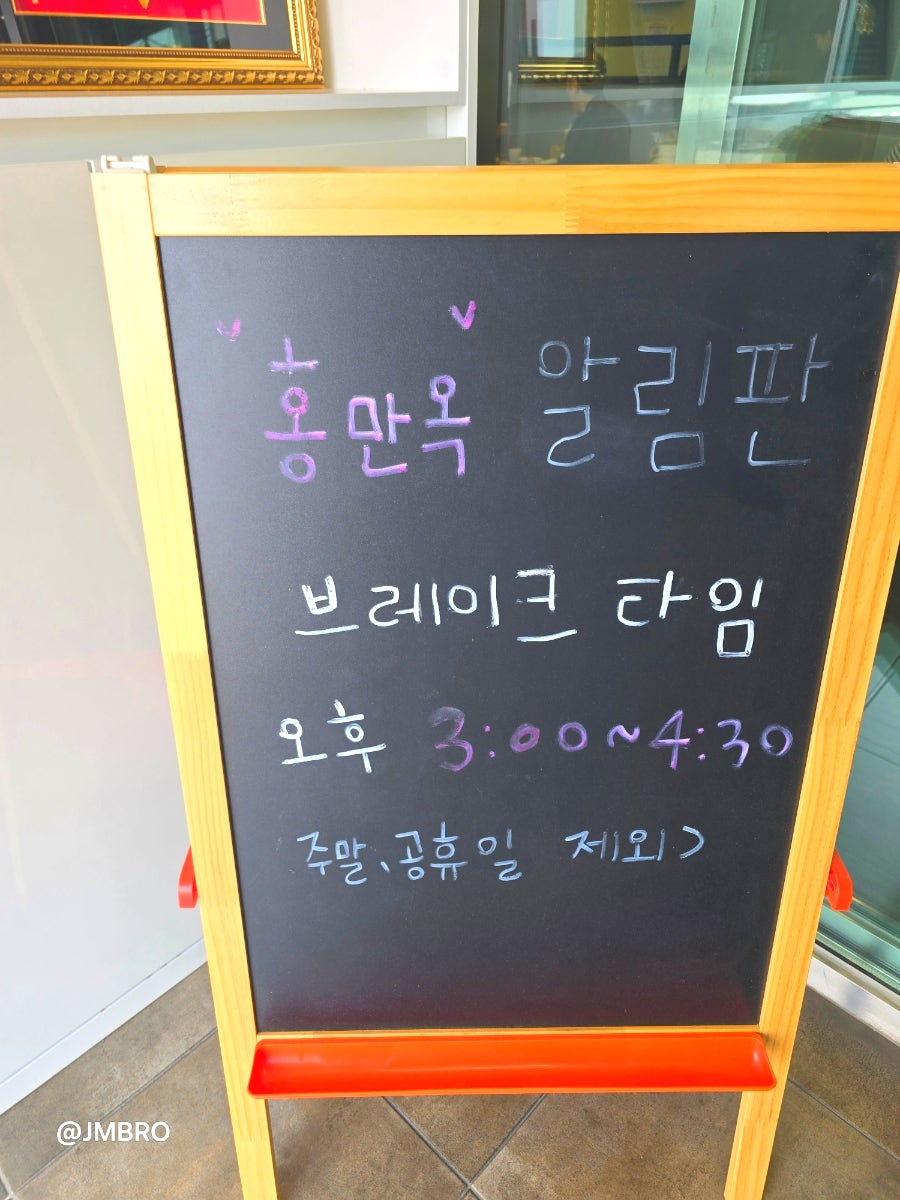 홍만옥 알림판
브레이크 타임
오후 3:00~4:30
주말、공휴일 제외>
@JMBRO